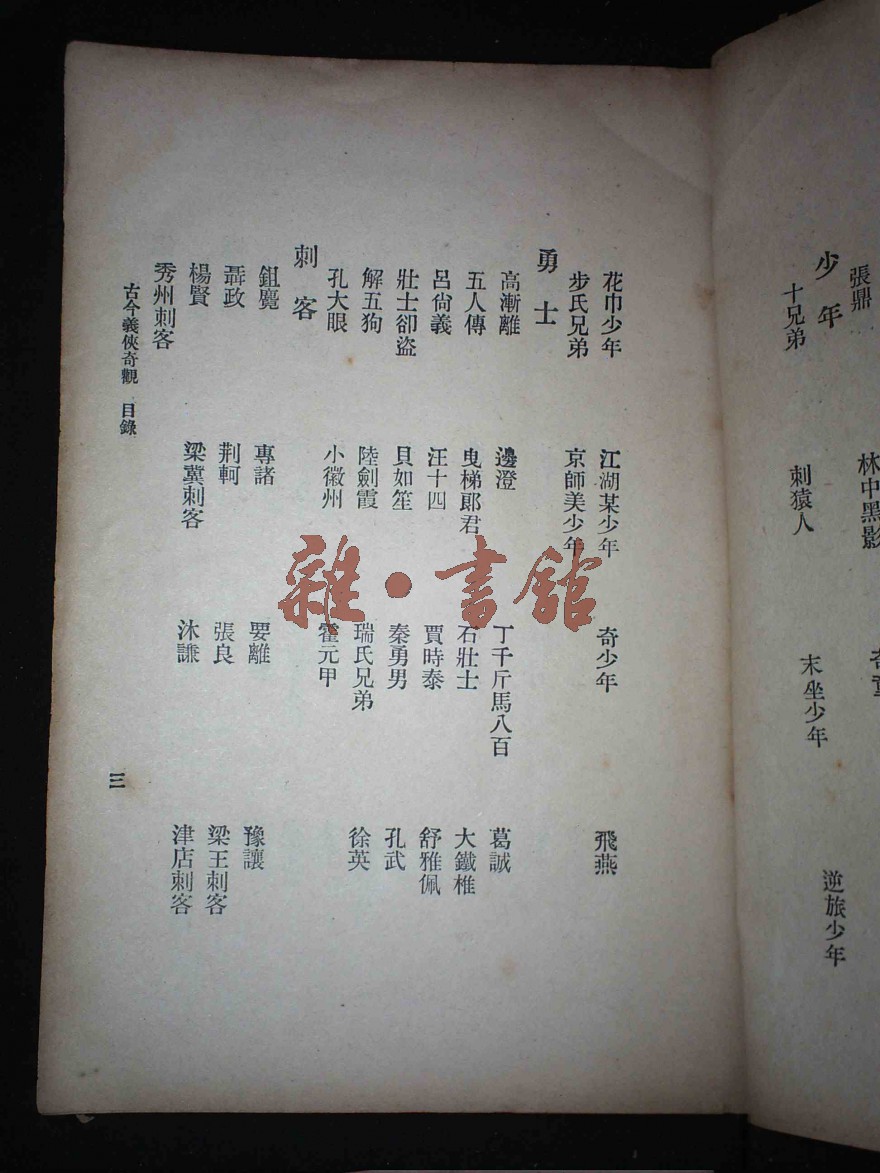 張鼎
林中黑影
少年
十兄弟
刺猿人
末坐少年
逆旅少年
花巾少年
江湖某少年
奇少年
飛燕
步氏兄弟
京師美少年
勇士
高漸離
邊澄
丁千斤馬八百
葛誠
五人傳
曳梯郎君
石壯士
大鐵椎
呂尙義
汪十四
賈時泰
舒雅佩
壯士卻盜
貝如笙
秦勇男
孔武
解五狗
陸劍霞
瑞氏兄弟
徐英
孔大眼
小徽州
霍元甲
刺客
鉏麑
專諸
要離
豫讓
聶政
荆軻
張良
梁王刺客
楊賢
梁冀刺客
沐謙
津店刺客
秀州刺客
古今義俠奇觀 目錄
三
雜·書館